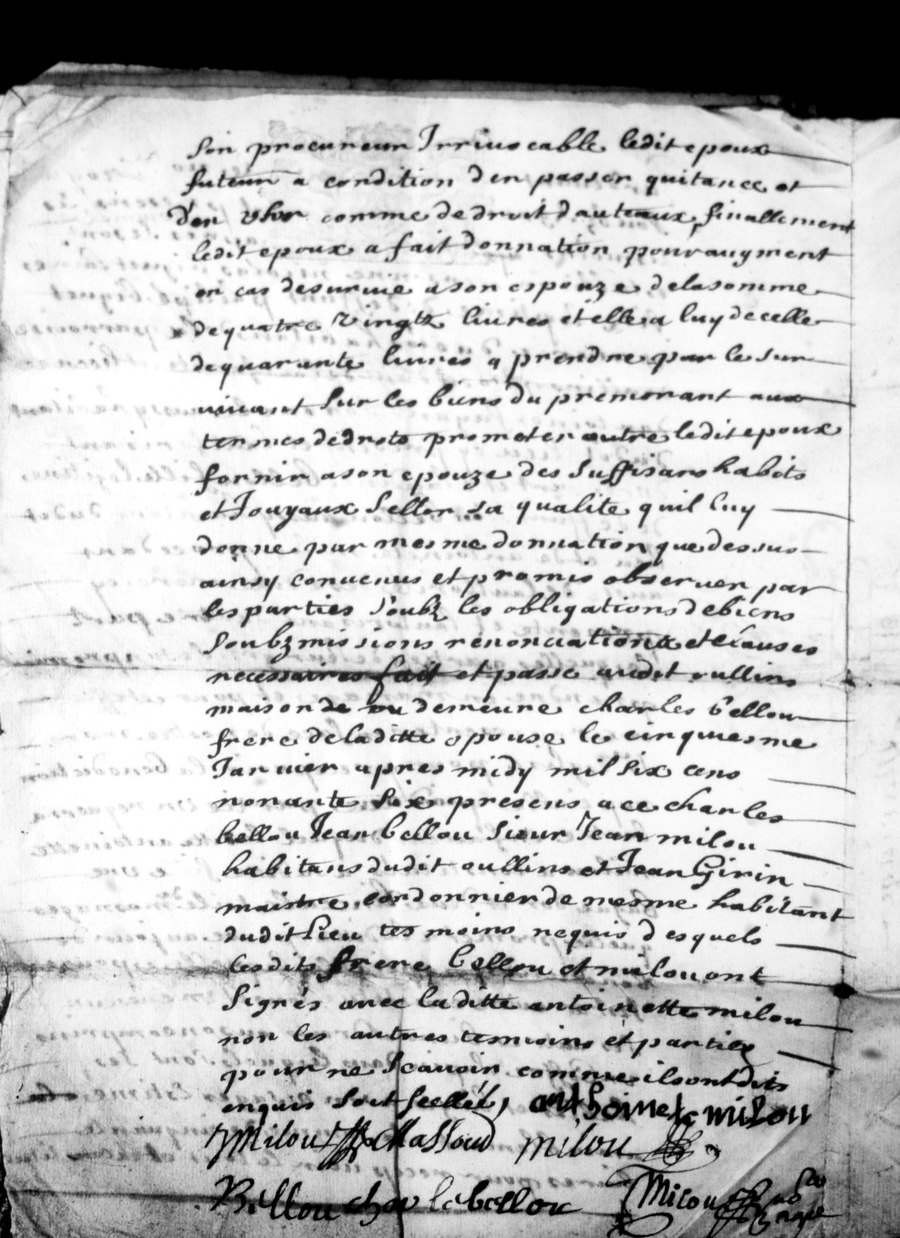 son procureur Irrivocable ledit epoux
futeur a condition den passer quitance et
d'en user comme de droit dauteaux, finallement
ledit epoux a fait donnation pour augment
en cas de survie a son espouze de la somme
de quatre vingtz livres et elle a luy de celle
de quarante livres a prendre par le sur
vivant sur les biens du premorant aux
termes de droto prometer outre ledit epoux
fornir a son epouze des suffisans habits
et Jouyaux sellon sa qualite quil luy
donne par mesme donnation que dessus
ainsy convenus et promis observer par
les parties soubz les obligations de biens
soubzmissions renonciations et clauses
necessaires fait et passé audit oullins
maison de ou demeure charles bellou
frere de laditte epouse le cinquiesme
Janvier apres midy mil six cens
nonante six presens a ce charles
bellou Jean bellou sieur Jean milou
habitans dudit oullins et Jean Girin
maistre cordonnier de mesme habitant
dudit lieu tesmoins requis desquels
lesdits frere bellou et milou ont
signés avec laditte antoinette milou
non les autres temoins et parties
pour ne scavoir comme ils ont dits
enquis soit scellét, anthoinette milou
Milou chassoud milou
Bellou charle bellou Milou